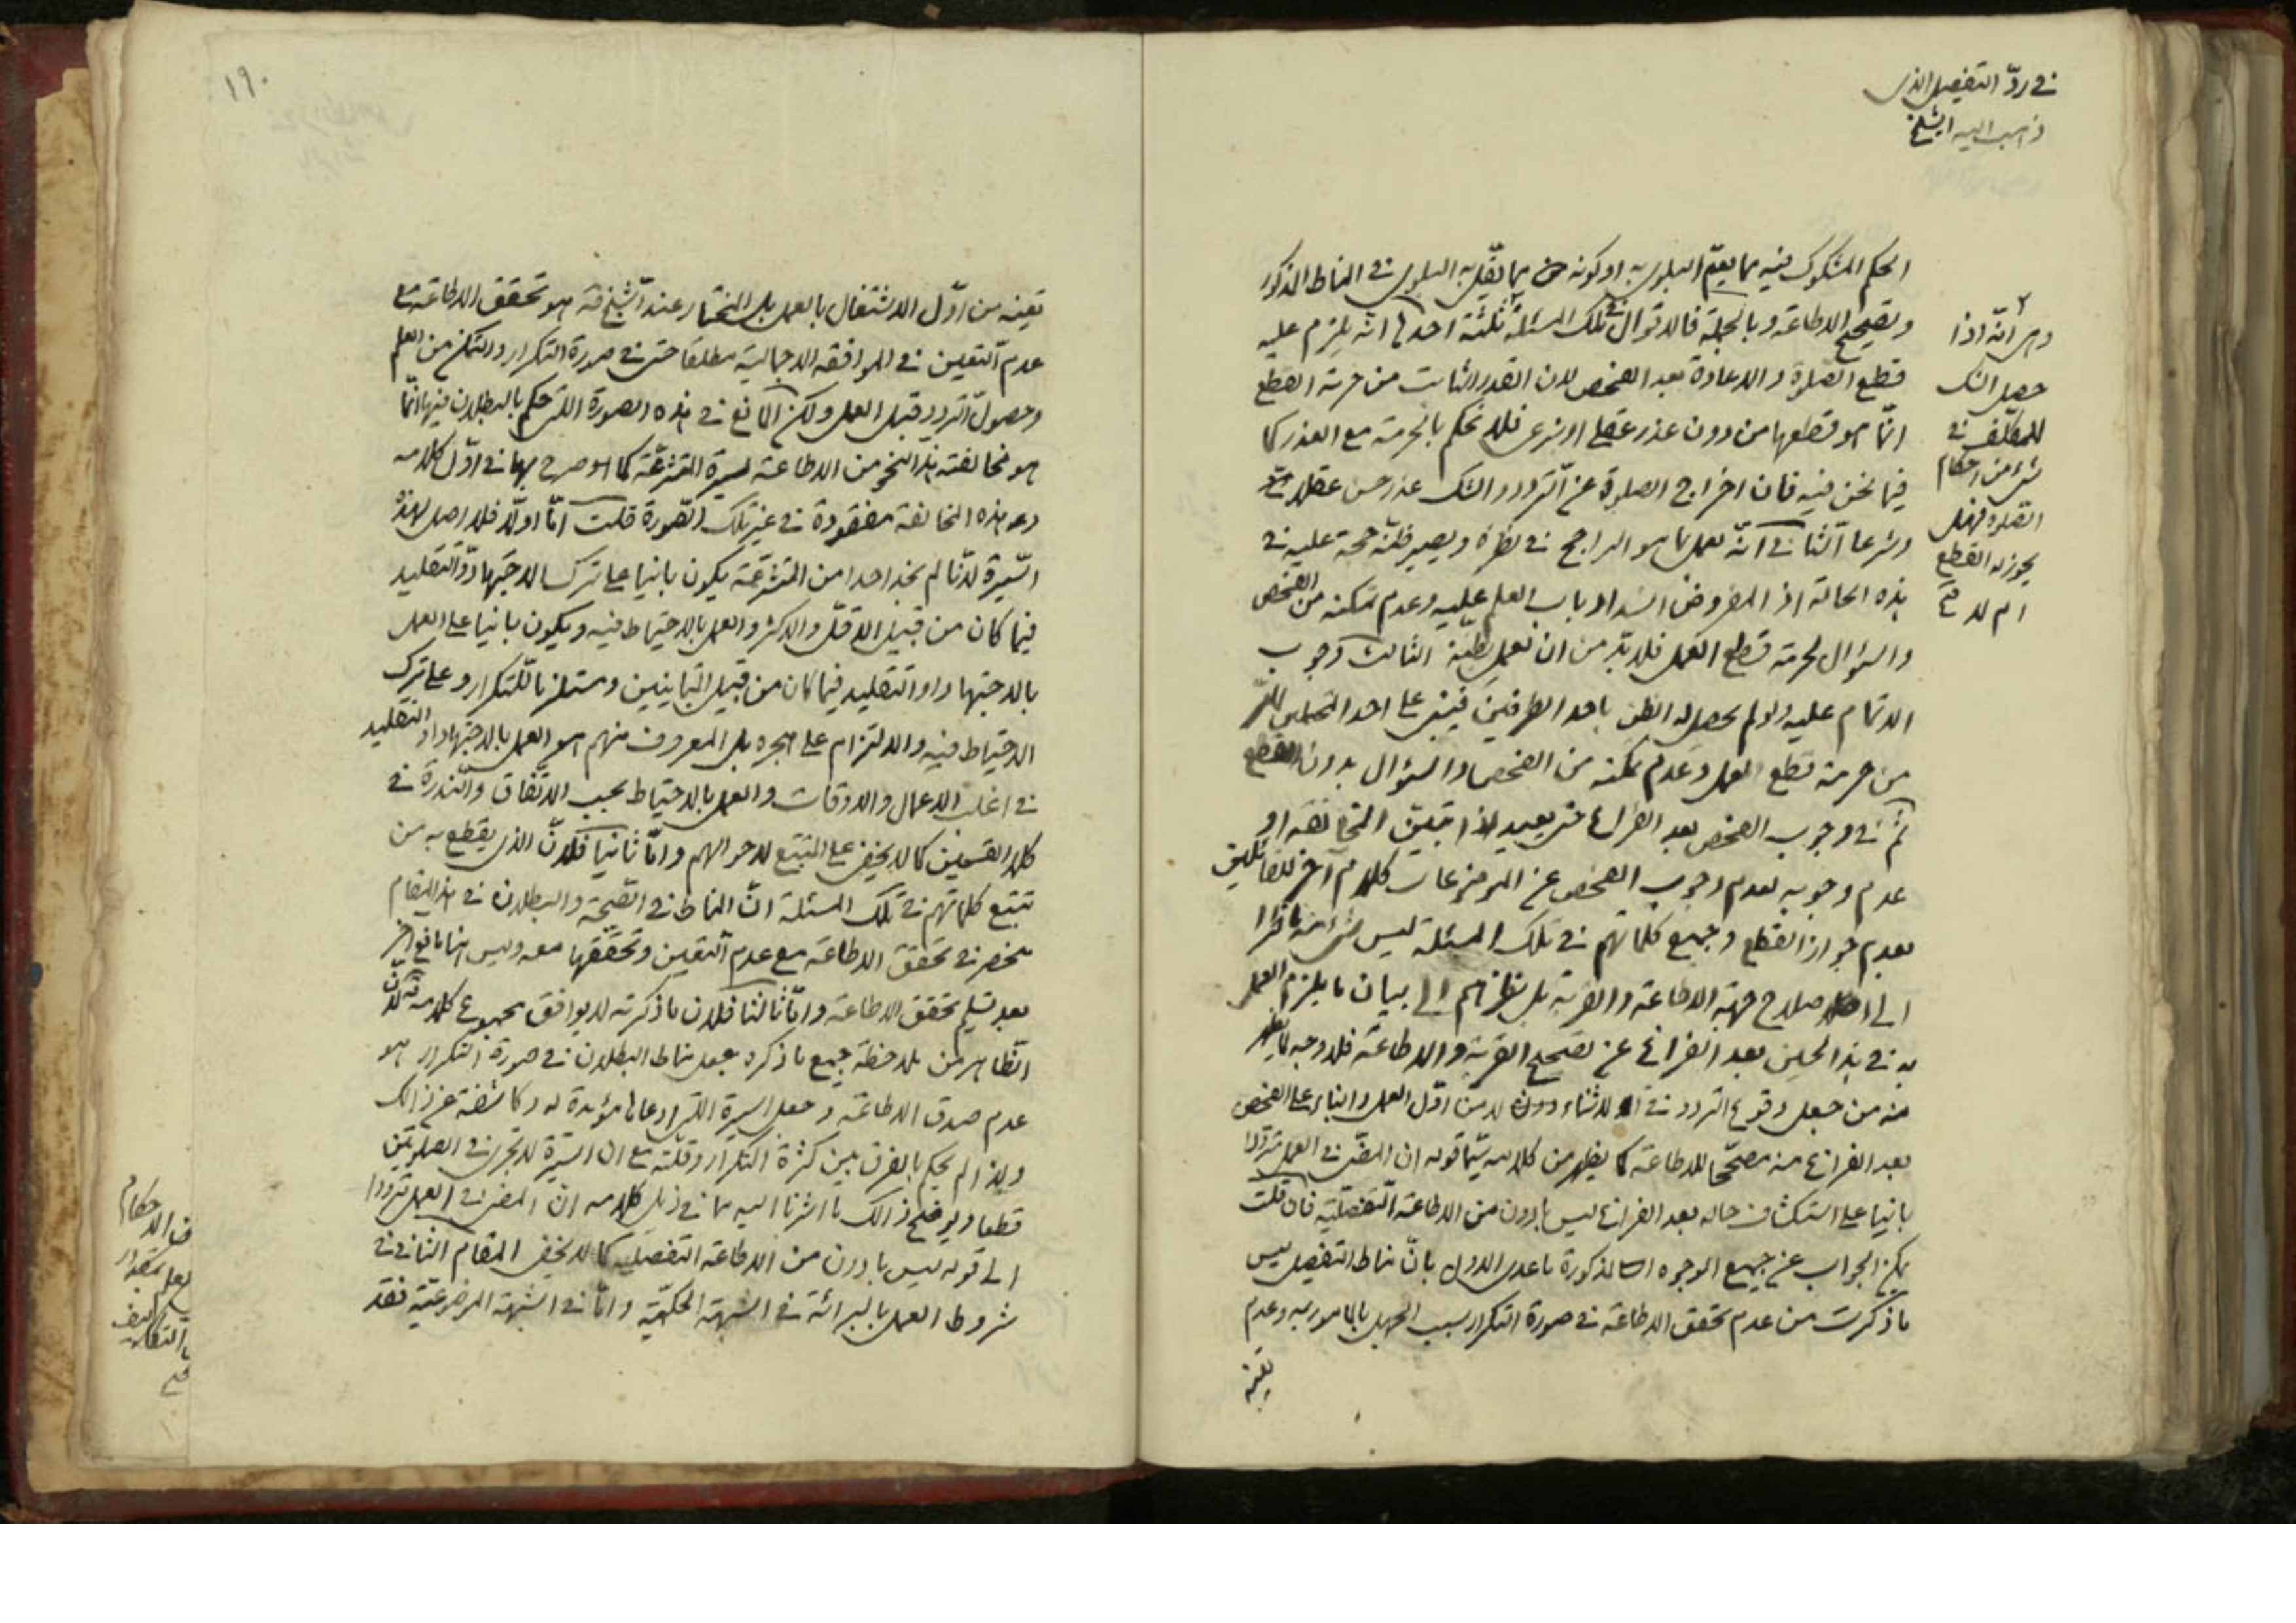 في ردّ التفصيل الذي
ذهب اليه الشيخ
الحكم المشكوك فيه مما يعمّ البلوى به او كونه مما يقلّ به البلوى في المناط المذكور
وتصحيح الاطاعة وبالجملة فالاقوال في تلك المسئلة ثلثة احدها انه يلزم عليه
قطع الصلوة والاعادة بعد الفحص لان القدر الثابت من حرمة القطع
انّما هو قطعها من دون عذر عقلي او شرعي فلا نحكم بالحرمة مع العذر كما
فيما نحن فيه فان اخراج الصلوة عن التردد والشك عذر حسن عقلا
وشرعا الثاني انّه يعمل بما هو الراجح في نظره ويصير ظنّه حجة عليه في
هذه الحالة اذ المفروض انسداد باب العلم عليه وعدم تمكنه من الفحص
والسؤال لحرمة قطع العمل فلا بدّ من ان يعمل بظنّه الثالث وجوب
الاتمام عليه ولو لم يحصل له الظن باحد الطرفين فيبني على احد المحتملين
من حرمة قطع العمل وعدم تمكنه من الفحص والسؤال بدون القطع
ثمّ في وجوب الفحص بعد الفراغ حتى يعيد اذا تبيّن المخالفة او
عدم وجوبه لعدم وجوب الفحص عن الموضوعات كلام آخر للقائلين
بعدم جواز القطع وجميع كلماتهم في تلك المسئلة ليس شيء منها ناظرا
الى اصلاح جهة الاطاعة والقربة بل نظرهم الى بيان ما يلزم العمل
به في هذا الحين بعد الفراغ عن تصحيح القربة والاطاعة فلا وجه لما يظهر
منه من جعل وقوع التردد في الاثناء دون من اوّل العمل والبناء على الفحص
بعد الفراغ منه مصحّحا للاطاعة كما يظهر من كلامه سيّما قوله ان المضيّ في العمل متردّدا
بانيا على استكشاف حاله بعد الفراغ ليس بادون من الاطاعة التفصيليّة فان قلت
يمكن الجواب عن جميع الوجوه المذكورة ما عدى الاول بانّ مناط التفصيل ليس
ما ذكرت من عدم تحقق الاطاعة في صورة التكرار بسبب الجهل بالمامور به وعدم
تعينه
وهي انّه اذا
حصل الشك
للمكلّف في
شيء من احكام
الصلوة فهل
يجوز له القطع
ام لا صح
١٩٠
تعينه من اوّل الاشتغال بالعمل بل المختار عند الشيخ قه هو تحقق الاطاعة مع
عدم التعيين في الموافقة الاجمالية مطلقا حتى في صورة التكرار والتمكن من العلم
وحصول التردد قبل العمل ولكن المانع في هذه الصورة التي حكم بالبطلان فيها انّما
هو مخالفته هذا النحو من الاطاعة لسيرة المتشرعّة كما هو صرح بها في اوّل كلامه
وهذه المخالفة مفقودة في غير تلك الصّورة قلت امّا اولا فلا اصل لهذه
السّيرة لانّا لم نجد احدا من المتشرعّة يكون بانيا على ترك الاجتهاد والتقليد
فيما كان من قبيل الاقلّ والاكثر والعمل بالاحتياط فيه ويكون بانيا على العمل
بالاجتهاد او التقليد فيما كان من قبيل المتباينين ومستلزما للتكرار وعلى ترك
الاحتياط فيه والالتزام على هجره بل المعروف منهم هو العمل بالاجتهاد او التقليد
في اغلب الاعمال والاوقات والعمل بالاحتياط بحسب الاتفاق والنّدرة في
كلا القسمين كما لا يخفى على المتتبع لاحوالهم وامّا ثانيا فلانّ الذي يقطع به من
تتبع كلماتهم في تلك المسئلة انّ المناط في الصّحة والبطلان في هذا المقام
منحصر في تحقق الاطاعة مع عدم التعيين وتحققها معه وليس هنا مانع اخر
بعد تسليم تحقق الاطاعة وامّا ثالثا فلان ما ذكرته لا يوافق مجموع كلامه قه لانّ
الظاهر من ملاحظة جميع ما ذكره جعل مناط البطلان في صورة التكرار هو
عدم صدق الاطاعة وجعل السيرة التي ادعاها مؤيدة له وكاشفة عن ذلك
ولذا لم يحكم بالفرق بين كثرة التكرار وقلّته مع ان السّيرة لا تجري في الصلوتين
قطعا ويوضح ذلك ما اشرنا اليه مما في ذيل كلامه ان المضي في العمل متردّدا
الى قوله ليس بادون من الاطاعة التفصيليّة كما لا يخفى المقام الثاني في
شروط العمل بالبرائة في الشبهة الحكميّة وامّا في الشبهة الموضوعيّة فقد